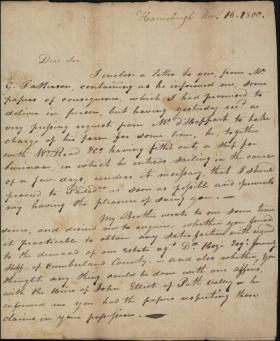 Harrisburgh Nov. 16. 1800.
Dear Sir.
I inclose a letter to you, from Mr.
G. Patterson, containing as he informed me, some
papers of consequence, which I had promised to
deliver in person, but having yesterday recd. a
very pressing request from Mr. to take
charge of his farm for some time, he, together
with Wm. Read having fitted out a ship for
Surinam, in which he intends sailing in the course
of a few days, renders it necessary, that I should
proceed to as soon as possible and prevents
my having the pleasure of seeing you —
My Brother wrote to me some time
since, and desired me to enquire, whether you found
it practicable to obtain any satisfaction with regard
to the demand of our estate agt. Dr. Hoge Esqr. former
Shff. of Cumberland County. — and also whether you
thought any thing could be done with our affairs,
with the Heirs of John Elliot of Path Valley — he
informed me you had the papers respecting those
claims in your possession. —